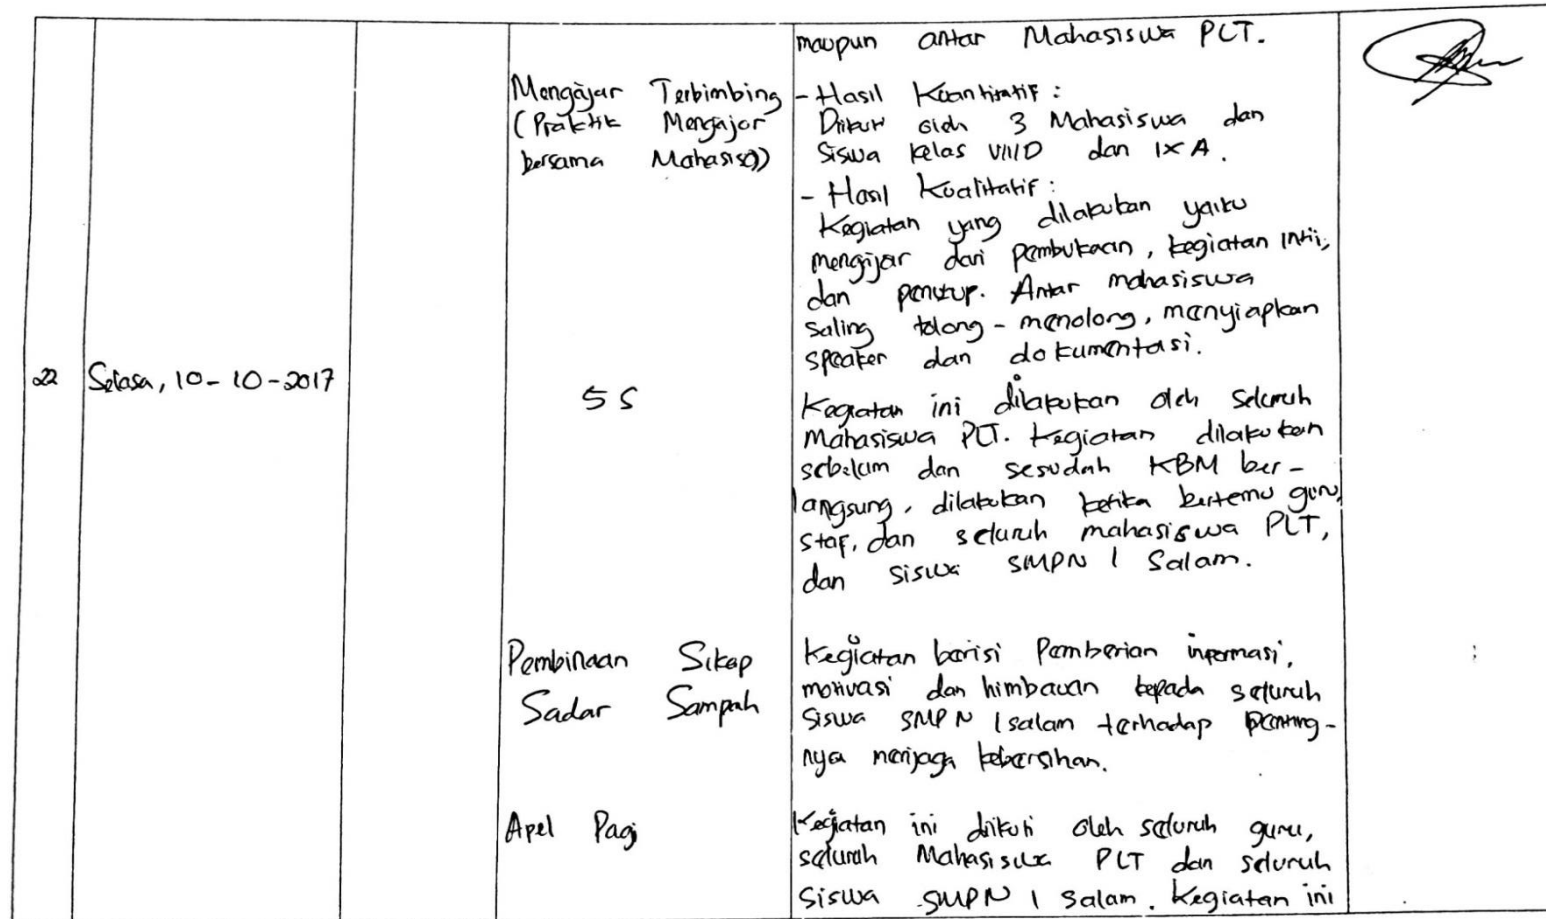 maupun antar Mahasiswa PLT.
Mengajar Terbimbing
(Praktik Mengajar
bersama Mahasiswa)
- Hasil Kuantitatif :
Diikuti oleh 3 Mahasiswa dan
Siswa kelas VIIID dan IXA.
- Hasil Kualitatif :
Kegiatan yang dilakukan yaitu
mengijar dari pembukaan, kegiatan inti,
dan penutup. Antar mahasiswa
saling tolong-menolong, menyiapkan
speaker dan dokumentasi.
22 Selasa, 10-10-2017
5 S
Kegiatan ini dilakukan oleh seluruh
Mahasiswa PLT. Kegiatan dilakukan
sebelum dan sesudah KBM ber-
langsung, dilakukan ketika bertemu guru,
staf, dan seluruh mahasiswa PLT,
dan siswa SMPN 1 Salam.
Pembinaan Sikap
Sadar Sampah
Kegiatan berisi Pemberian informasi,
motivasi dan himbauan kepada seluruh
siswa SMPN 1 Salam terhadap penting-
nya menjaga kebersihan.
Apel Pagi
Kegiatan ini diikuti oleh seluruh guru,
seluruh Mahasiswa PLT dan seluruh
Siswa SMPN 1 Salam. Kegiatan ini